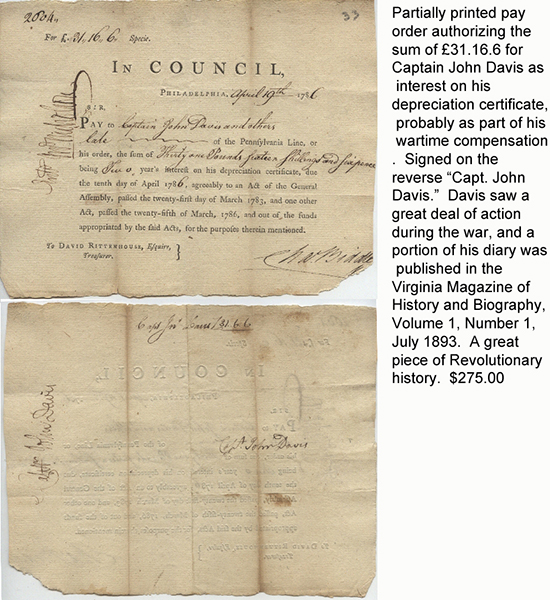 2684.
33
For £.31.16.6. Specie.
IN COUNCIL,
PHILADELPHIA, April 19th 1786
SIR,
PAY to Captain John Davis and others
late of the Pennsylvania Line, or
his order, the sum of Thirty one Pounds sixteen Shillings and sixpence
being Two, year's interest on his depreciation certificate, due
the tenth day of April 1786, agreeably to an Act of the General
Assembly, passed the twenty-first day of March 1783, and one other
Act, passed the twenty-fifth of March, 1786, and out of the funds
appropriated by the said Acts, for the purposes therein mentioned.
To DAVID RITTENHOUSE, Esquire, }
Treasurer.
Cha Biddle
Capt Jno Davis £31.6.6
John Davis
Capt. John Davis
Partially printed pay
order authorizing the
sum of £31.16.6 for
Captain John Davis as
interest on his
depreciation certificate,
probably as part of his
wartime compensation
. Signed on the
reverse “Capt. John
Davis.” Davis saw a
great deal of action
during the war, and a
portion of his diary was
published in the
Virginia Magazine of
History and Biography,
Volume 1, Number 1,
July 1893. A great
piece of Revolutionary
history. $275.00